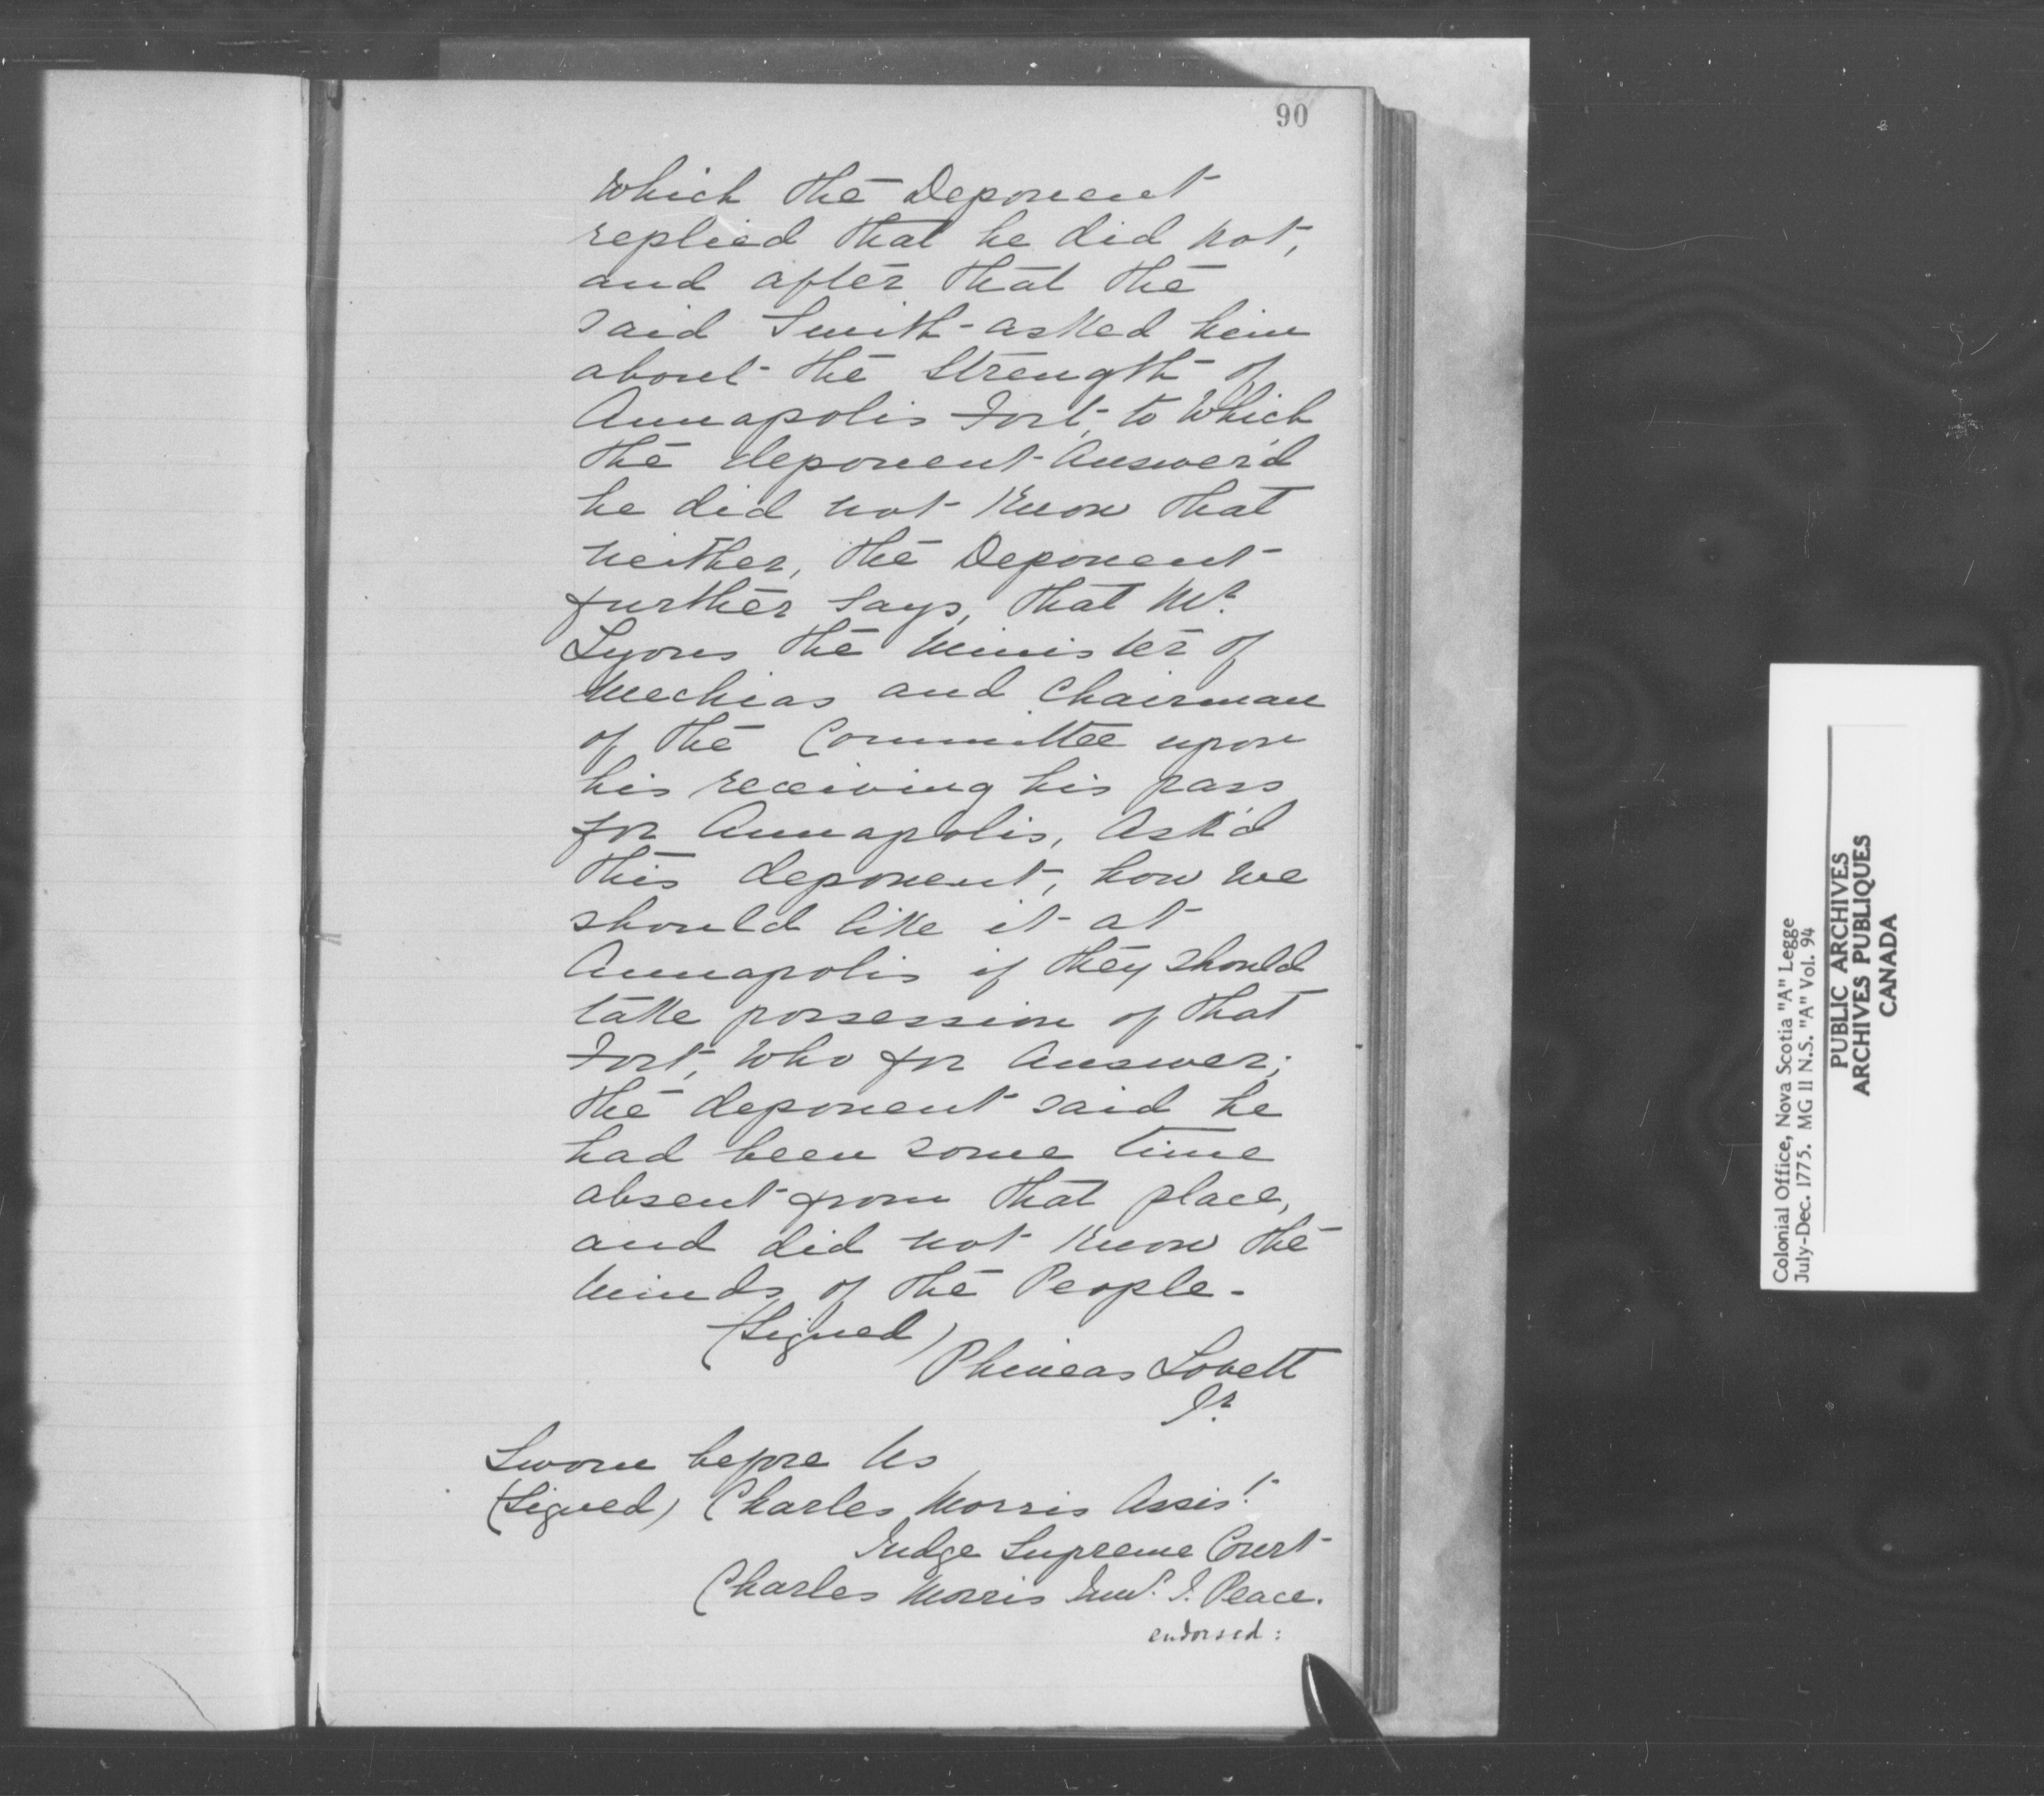 90
Which the Deponent
replied that he did not,
and after that the
said Smith asked him
about the Strength of
Annapolis Fort, to Which
the deponent Answer'd
he did not Know that
neither, the Deponent
further Says, that Mr.
Lyons the Minister of
Mechias and Chairman
of the Committee upon
his receiving his pass
for Annapolis, Ask'd
this deponent, how we
should like it at
Annapolis if they should
take possession of that
Fort, Who for Answer;
the deponent said he
had been some time
absent from that place,
and did not Know the
Minds of the People.
(Signed)
Phineas Lovett
Jr.
Sworn before Us
(Signed) Charles Morris Assist.
Judge Supreme Court
Charles Morris Junr. J. Peace.
endorsed:
Colonial Office, Nova Scotia "A" Legge
July-Dec. 1775. MG 11 N.S. "A" Vol. 94
PUBLIC ARCHIVES
ARCHIVES PUBLIQUES
CANADA